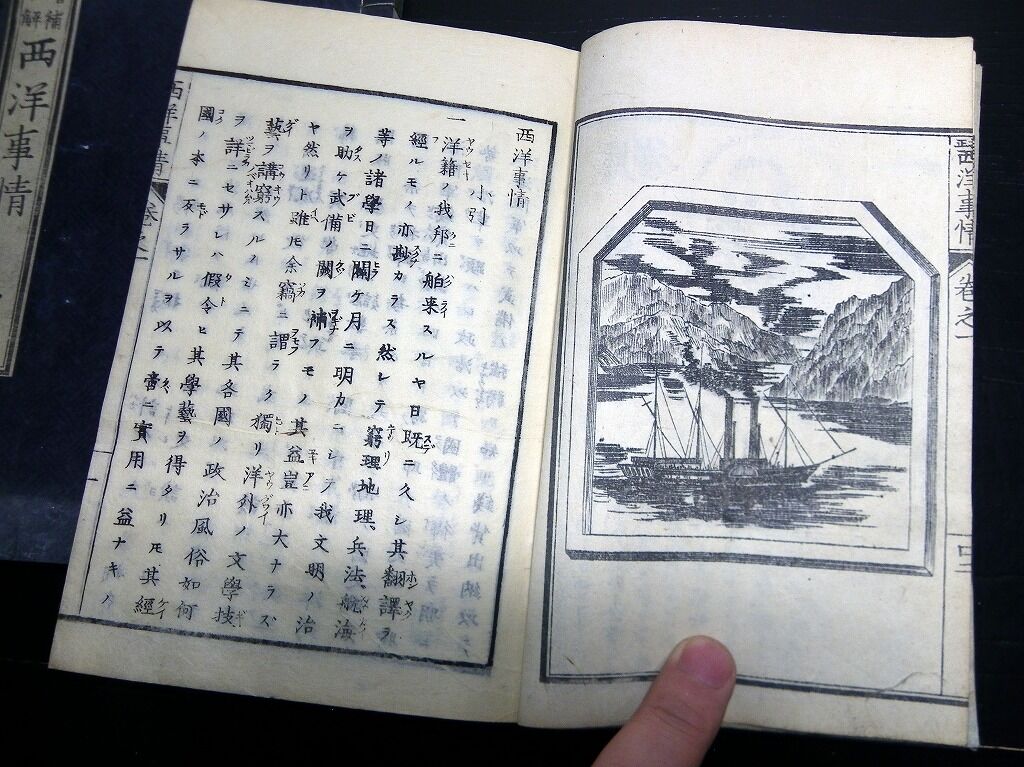 西洋事情
巻之一
西洋事情
小引
一洋籍ノ我邦ニ舶来スルヤ日既ニ久シ其翻譯ヲ
經ルモノ亦尠カラス然レテ窮理地理、兵法、航海
等ノ諸學日ニ闢ケ月ニ明カニシテ我文明ノ治
ヲ助ケ武備ノ闕ヲ補フモノ其益豈亦大ナラズ
ヤ然リト雖モ余竊ニ謂ラク獨リ洋外ノ文學技
藝ヲ講窮スルノミニテ其各國ノ政治風俗如何
ヲ詳ニセサレハ假令ヒ其學藝ヲ得タリモ其經
國ノ本ニ反ラサルヲ以テ啻ニ實用ニ益ナキノ
西洋事情
巻之一
一
補
解
西洋事情